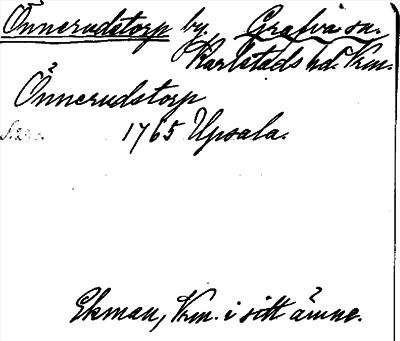 Önnerudstorp by. Grafva sn.
Karlstads hd. Vrm.
Önnerudstorp
1765 Upsala.
Ekman, Vrm. i sitt ämne.